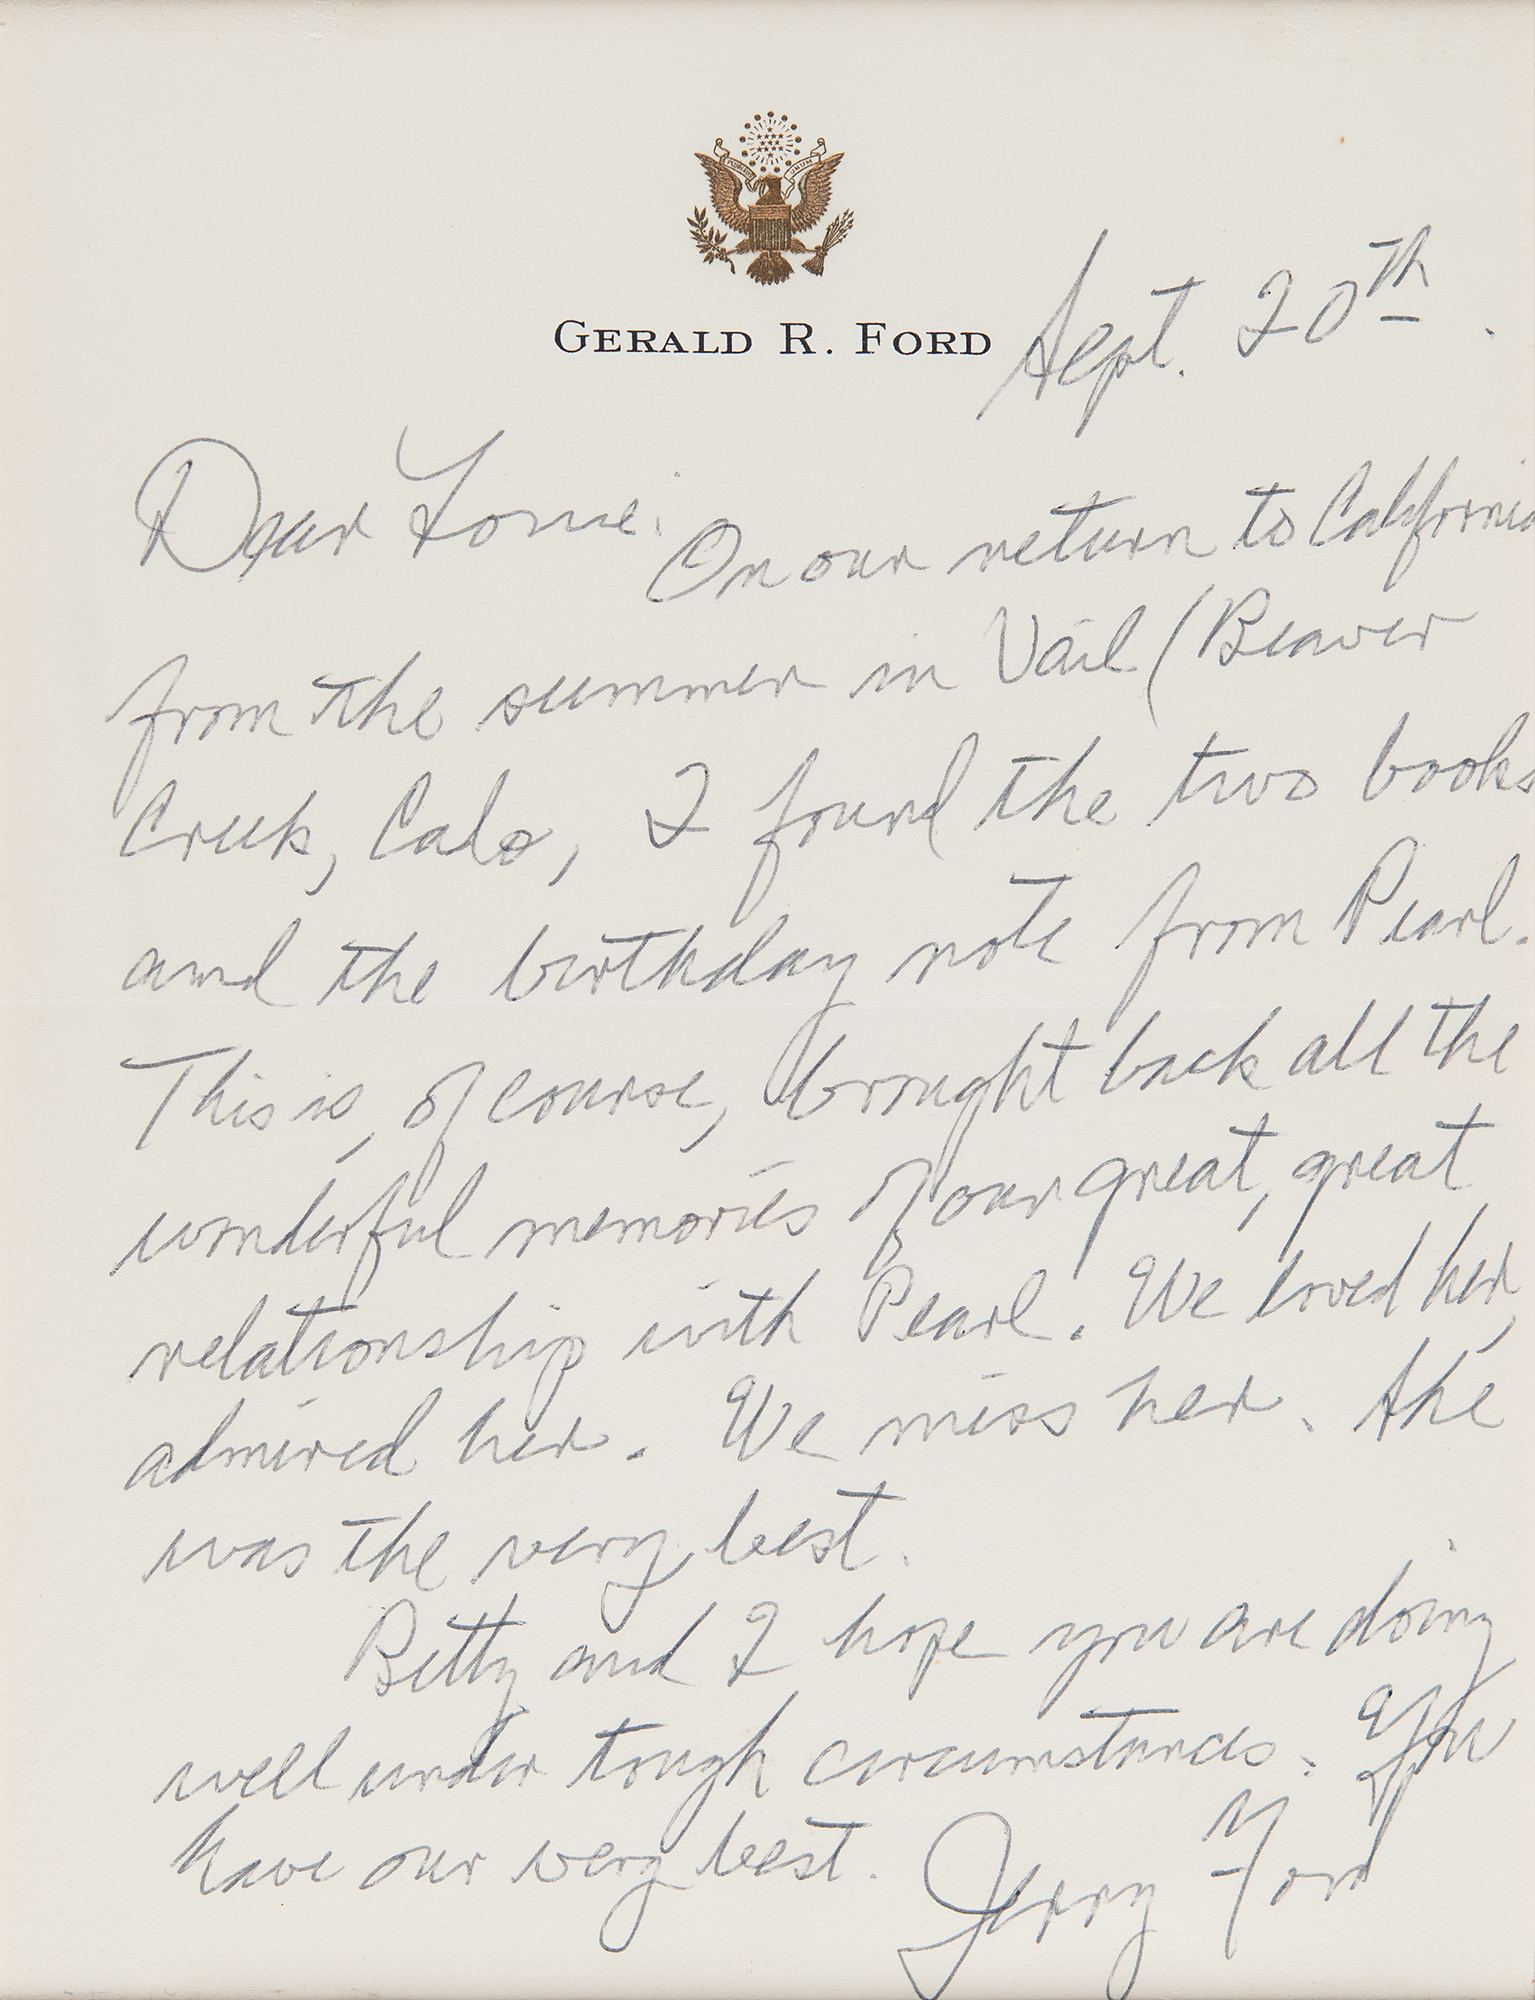 GERALD R. FORD
Sept. 20th.
Dear Louie: On our return to California
from the summer in Vail (Beaver
Creek, Colo, I found the two books
and the birthday note from Pearl.
This is, of course, brought back all the
wonderful memories of our great, great
relationship with Pearl. We loved her,
admired her. We miss her. She
was the very best.
Betty and I hope you are doing
well under tough circumstances. You
have our very best. Jerry Ford